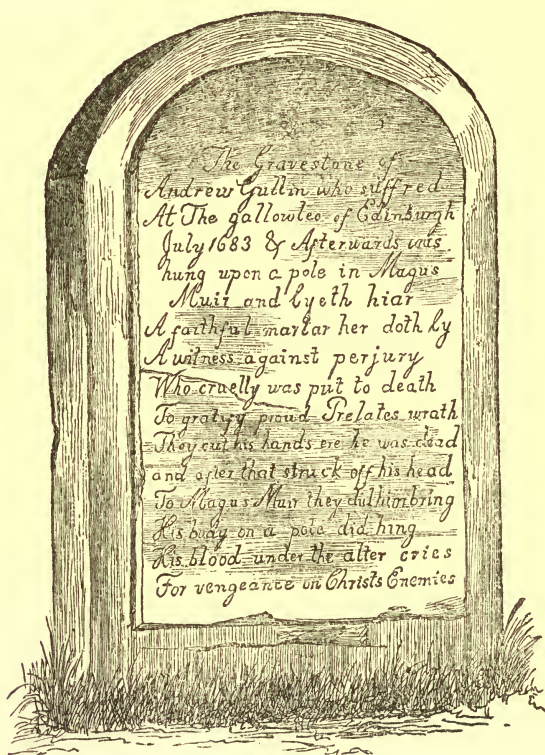 The Gravestone of
Andrew Gullin who suffred
At The gallowlee of Edinburgh
July 1683 & Afterwards was
hung upon a pole in Magus
Muir and lyeth hiar
A faithful martar her doth ly
A witness against perjury
Who cruelly was put to death
To gratify proud Prelates wrath
They cut his hands ere he was dead
and after that struck off his head
To Magus Muir they did him bring
His body on a pole did hing
His blood under the alter cries
For vengeance on Christs Enemies